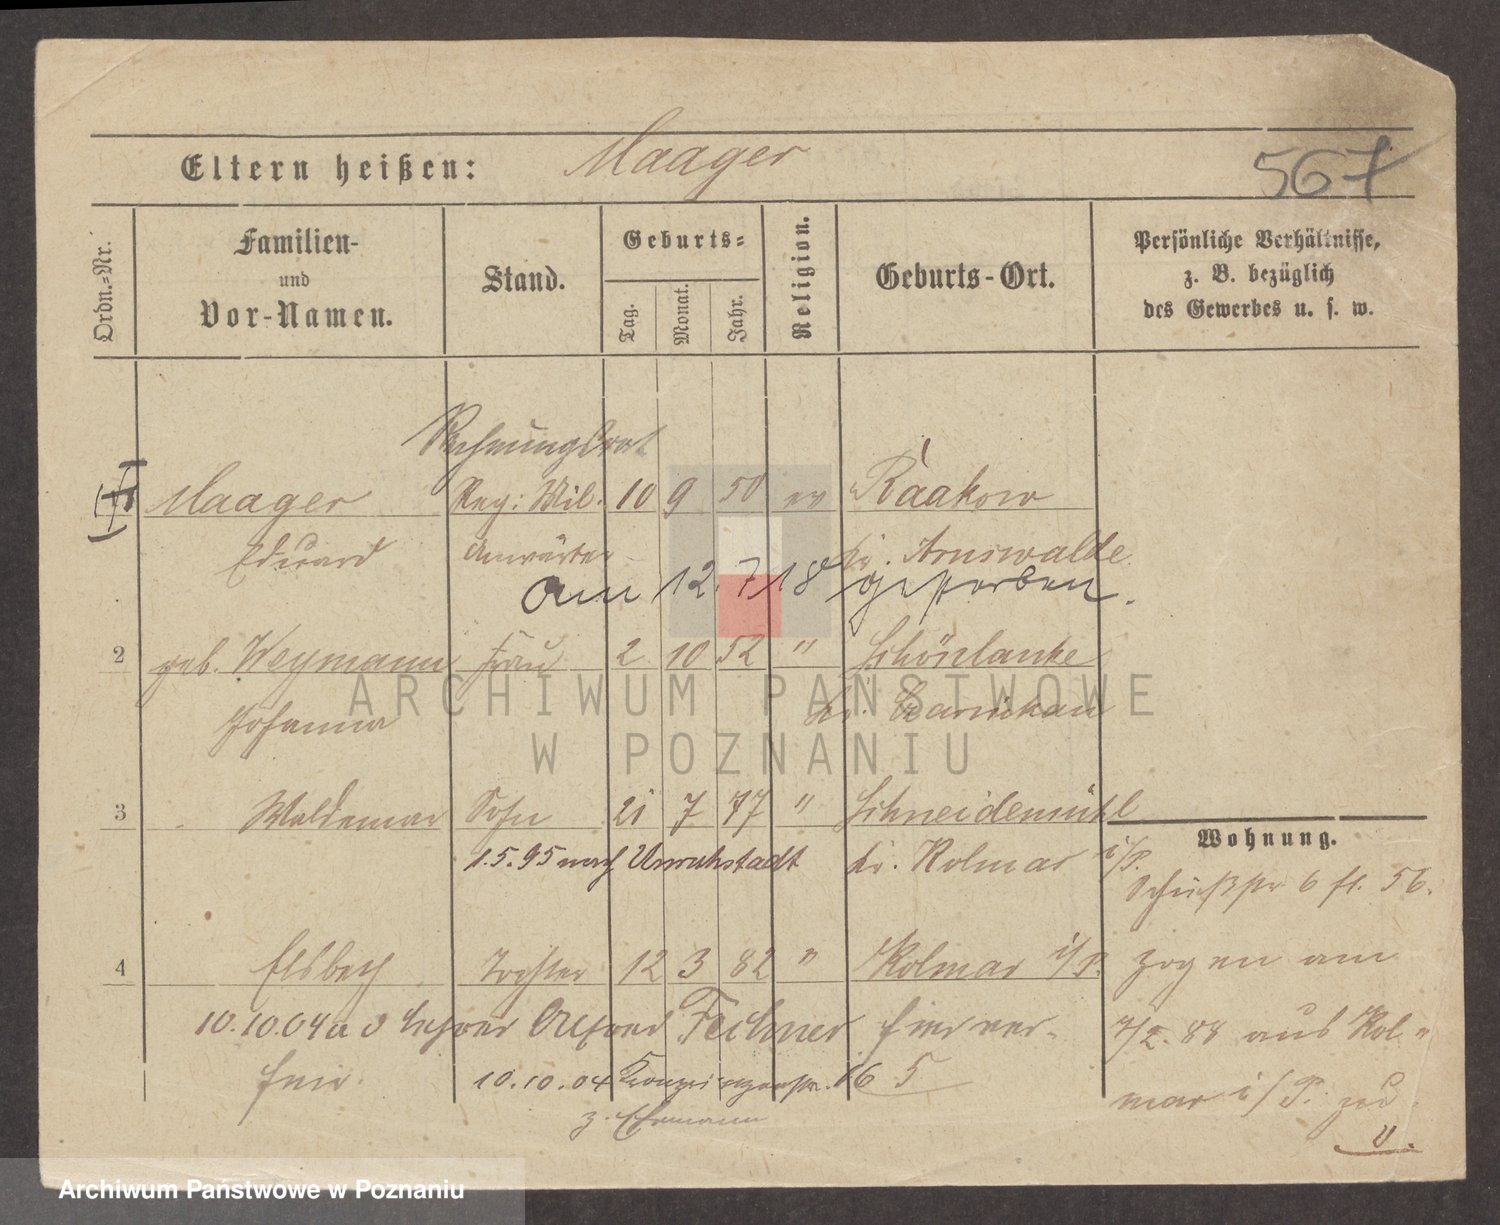 Eltern heißen: Maager
567
Ordn.-Nr.
Familien-
und
Vor-Namen.
Stand.
Geburts-
Tag.
Monat.
Jahr.
Religion.
Geburts-Ort.
Persönliche Verhältnisse,
z. B. bezüglich
des Gewerbes u. s. w.
Rechnungsrat
Maager Reg: Mil. 10 9 50 ev Raakow
Eduard Anwärter Kr. Arnswalde
am 12.7 18 gestorben.
2 geb. Weymann Frau 2 10 52 " Schönlanke
Johanna Kr. Czarnikau
ARCHIWUM PAŃSTWOWE
W POZNANIU
3 Waldemar Sohn 21 7 77 " Schneidemühl
1.5.95 nach Unruhstadt Kr. Kolmar i/P.
Wohnung.
Schießstr 6 fl. 56.
4 Elsbeth Tochter 12 3 82 " Kolmar i/P.
zogen am
10.10.04 a d Lehrer Alfred Fechner hier ver-
7/2. 88 aus Kol-
heir. 10.10.04 16 5
mar i/P. zu
z. Ehemann
Archiwum Państwowe w Poznaniu